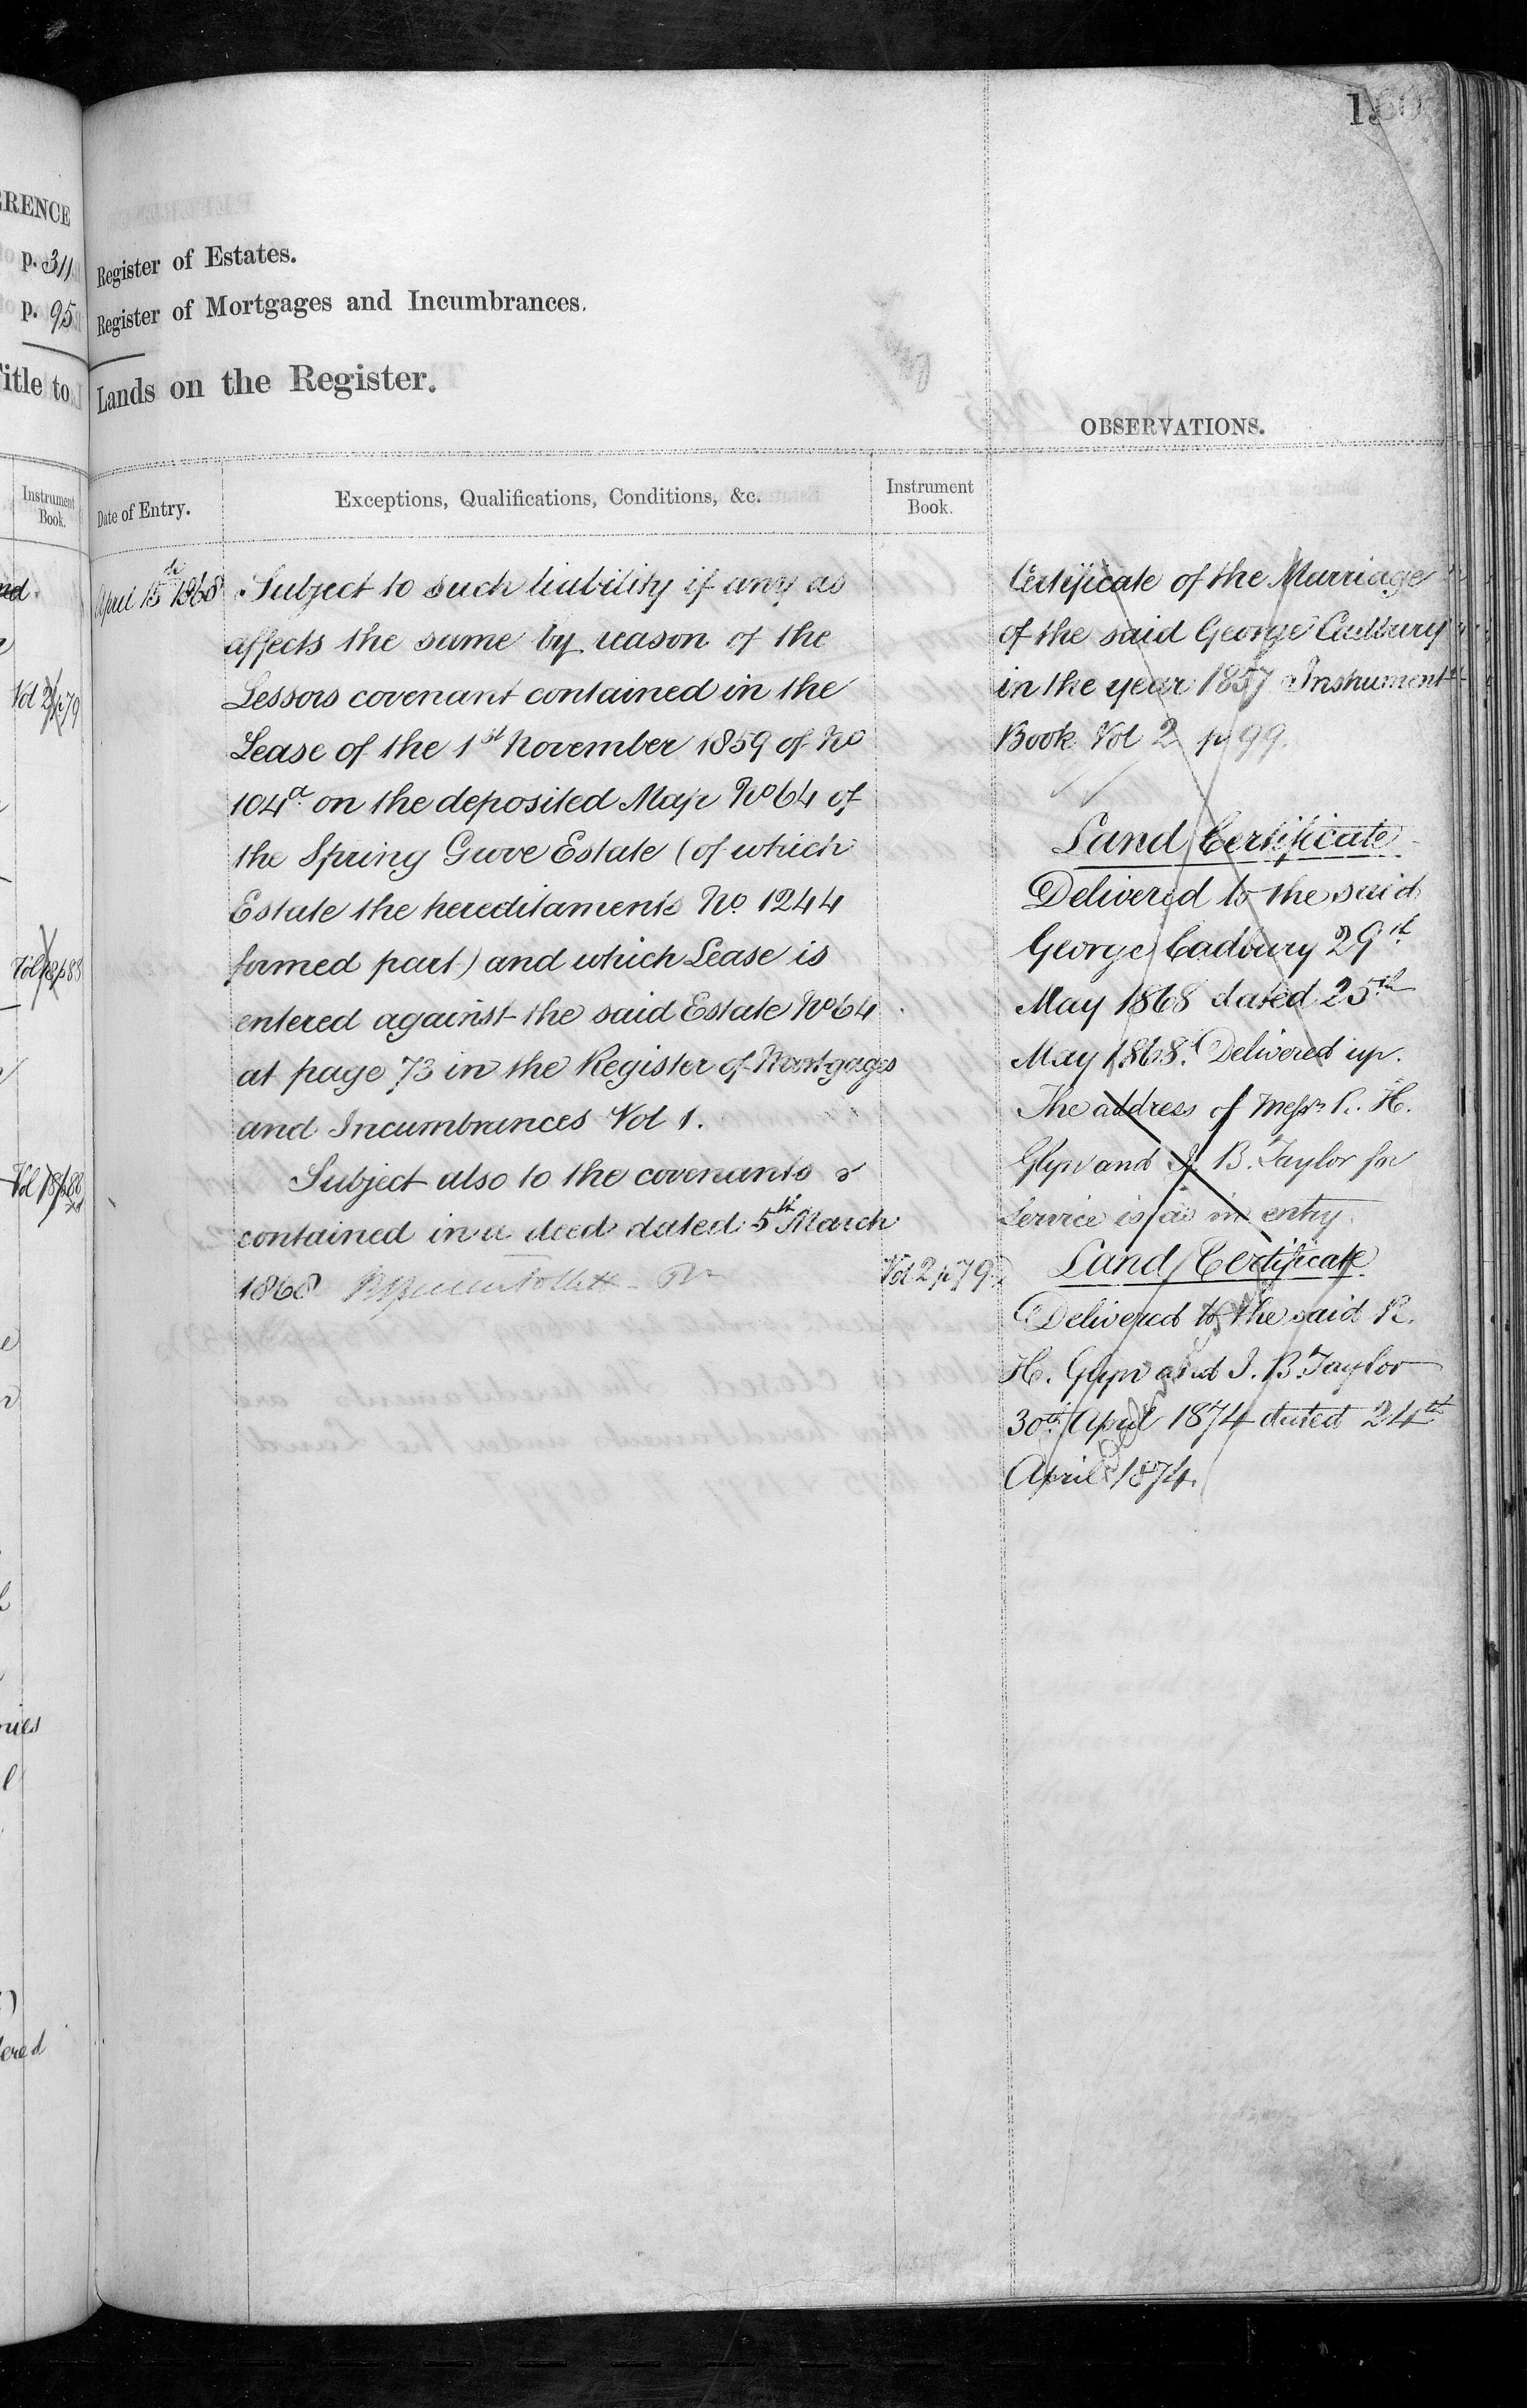 ERENCE
p. 311
p. 95
Title to
Instrument
Book.
Vol 2 p 79
Vol 18 p 88
Vol 18 p 88
ered
Register of Estates.
Register of Mortgages and Incumbrances.
Lands on the Register.
Date of Entry.
Exceptions, Qualifications, Conditions, &c.
Instrument
Book.
April 15th 1868
Subject to such liability if any as
affects the same by reason of the
Lessors covenant contained in the
Lease of the 1st November 1859 of No
104a on the deposited Map No 64 of
the Spring Grove Estate (of which
Estate the hereditaments No. 1244
formed part) and which Lease is
entered against the said Estate No 64
at page 73 in the Register of Mortgages
and Incumbrances Vol 1.
Subject also to the covenants
contained in a deed dated 5th March
1868
Vol 2 p 79
OBSERVATIONS.
Certificate of the Marriage
of the said George Cadbury
in the year 1857 Instrument
Book Vol 2 p 99.
Land Certificate
Delivered to the said
George Cadbury 29th
May 1868 dated 25th
May 1868. Delivered up.
The address of Messrs R. H.
Glyn and J. B. Taylor for
Service is as in entry
Land Certificate
Delivered to the said R.
H. Glyn and J. B. Taylor
30th April 1874 dated 24th
April 1874.